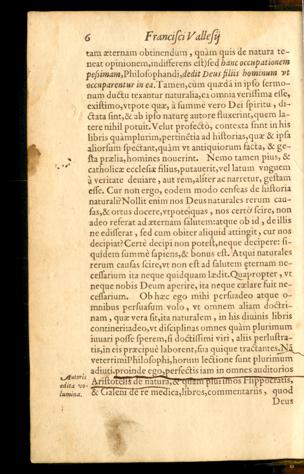 6 Francisci Vallesij
tam æternam obtinendum, quàm quis de natura te-
neat opinionem, indifferens est) sed hanc occupationem
pessimam, Philosophandi, dedit Deus filiis hominum vt
occuparentur in ea. Tamen, cùm quædã in ipso sermo-
num ductu texantur naturalia, ea omnia verissima esse,
existimo, vtpote quæ, à summè vero Dei spiritu, di-
ctata sint, & ab ipso naturę autore fluxerint, quem la-
tere nihil potuit. Velut profectò, contexta sunt in his
libris quàmplurimà, pertinẽtia ad historias, quæ & ipsa
aliorsum spectant, quàm vt antiquiorum facta, & ge-
sta prælia, homines nouerint. Nemo tamen pius, &
catholicæ ecclesiæ filius, putauerit, vel latum vnguem
à veritate deuiare, aut rem, aliter ac narretur, gestam
esse. Cur non ergo, eodem modo censeas de historia
naturali? Nollit enim nos Deus naturales rerum cau-
sas, & ortus docere, vtpote quas, nos certò scire, non
adeo referat ad æternam salutem: atque ob id, de illis
ne edisserat, sed cum obiter aliquid attingit, cur nos
decipiat? Certè decipi non potest, neque decipere: si-
quidem summè sapiens, & bonus est. Atqui naturales
rerum causas scire, vt non est ad salutem ęternam ne-
cessarium ita neque quidquam lædit. Quapropter, vt
neque nobis Deum aperire, ita neque cælare fuit ne-
cessarium. Ob hæc ego mihi persuadeo atque o-
mnibus persuasum volo, vt omnem aliam doctri-
nam, quæ vera sit, ita naturalem, in his diuinis libris
contineri: adeo, vt disciplinas omnes quàm plurimum
iuuari posse sperem, si doctissimi viri, aliis perlustra-
tis, in eis præcipuè laborent, sua quique tractantes. Nã
veterrimi Philosophi, horum lectione sunt plurimum
adiuti, proinde ego, perfectis iam in omnes auditorios
Aristotelis de natura, & quàm plurimos Hippocratis,
& Galeni de re medica, libros, commentariis, quod
Deus
Autoris
edita vo-
lumina.